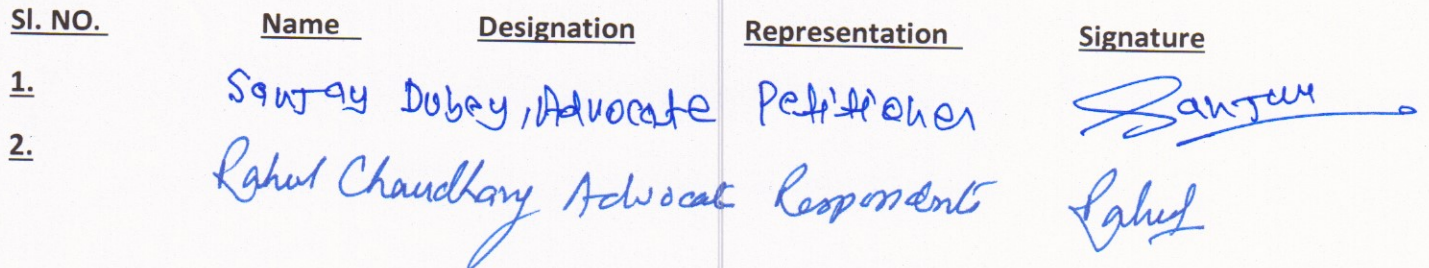 Sl. NO. Name Designation Representation Signature
1. Sanjay Dubey, Advocate Petitioner Sanjay
2. Rahul Chaudhary Advocate Respondents Rahul